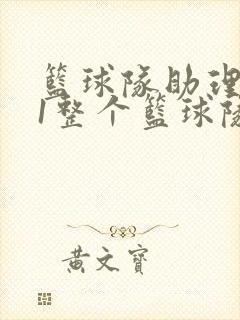 籃球隊助理
1整个籃球隊
黄文寶